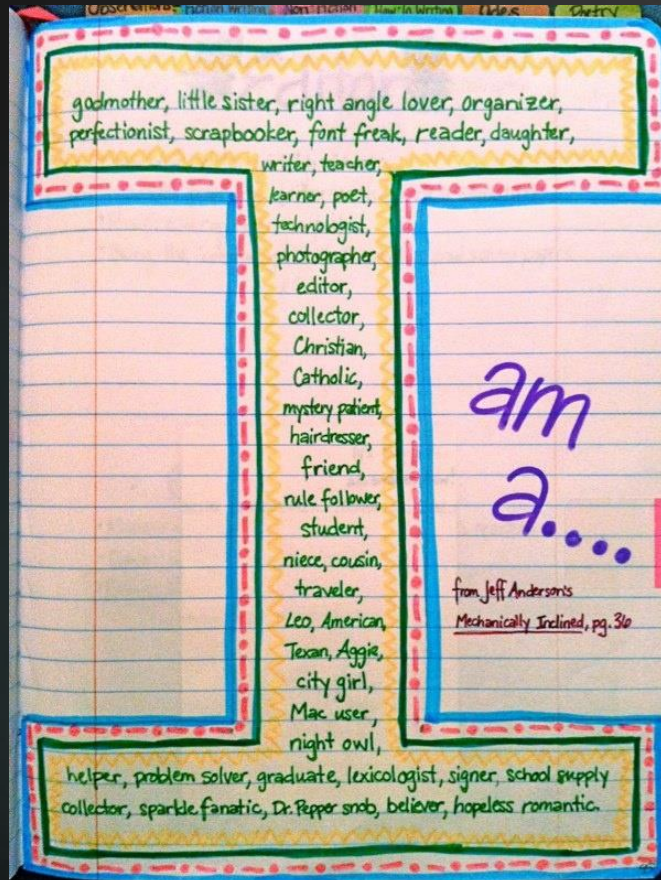 Fiction Writing
Non Fiction
How-To Writing
Odes
Poetry
godmother, little sister, right angle lover, organizer,
perfectionist, scrapbooker, font freak, reader, daughter,
writer, teacher,
learner, poet,
technologist,
photographer,
editor,
collector,
Christian,
Catholic,
mystery patient,
hairdresser,
friend,
rule follower,
student,
niece, cousin,
traveler,
Leo, American,
Texan, Aggie,
city girl,
Mac user,
night owl,
helper, problem solver, graduate, lexicologist, signer, school supply
collector, sparkle fanatic, Dr. Pepper snob, believer, hopeless romantic.
am
a....
from Jeff Anderson's
Mechanically Inclined, pg. 36